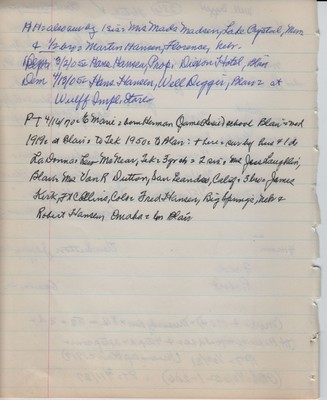 H H= also surv by 1 sis = Mrs Mads Madsen, Lake Crystal, Minn
& 1/2 bro = Martin Hansen, Florence, Nebr.
9/2/05= Hans Hansen, Prop. Dixon Hotel, dies
Dem 7/13/05= Hans Hansen, Well Digger, Blair= at
Wulff Impl. Store
P-T 4/14/70= Marie= born Herman school Blair= md
1919= at Blair= to Tek 1950= to Blair= + her= sur by hus & 1 d=
LaDonna= McNear, Tek= 3 grch= 2 sis= Mrs Jess Laughlin,
Blair= Mrs Van R Dutton, San Leandro, Calif= 3 bro= James
Kirk, Ft Collins, Colo= Fred Hansen, Big Springs, Nebr &
Robert Hansen Omaha= bur Blair